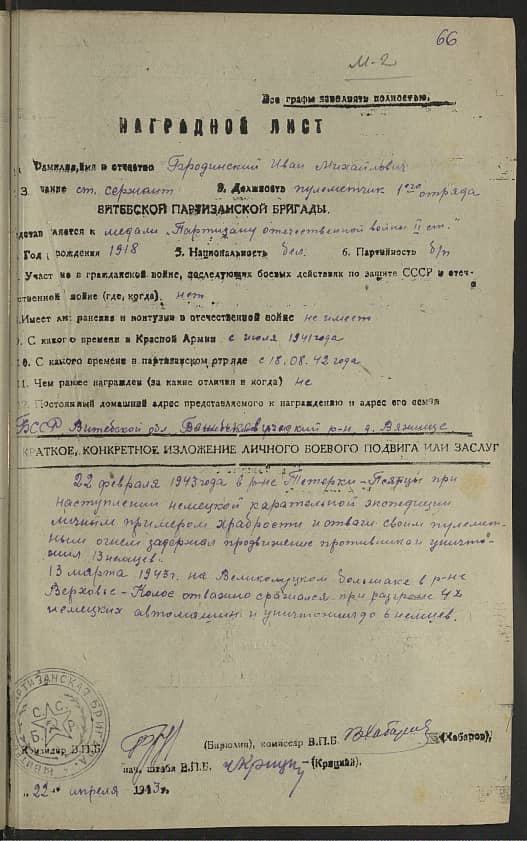 66
М-2
Все графы заполнять полностью.
НАГРАДНОЙ ЛИСТ
Фамилия, имя и отчество Гародинский Иван Михайлович
3. Звание ст. сержант 2. Должность пулеметчик 1го отряда
ВИТЕБСКОЙ ПАРТИЗАНСКОЙ БРИГАДЫ.
представляется к медали "Партизану отечественной войны II ст."
Год рождения 1918 5. Национальность бел. 6. Партийность б/п
Участие в гражданской войне, последующих боевых действиях по защите СССР и отече-
ственной войне (где, когда) нет
Имеет ли ранения и контузии в отечественной войне не имеет
9. С какого времени в Красной Армии с июля 1941 года
10. С какого времени в партизанском отряде с 18.08.42 года
11. Чем ранее награжден (за какие отличия и когда) не
12. Постоянный домашний адрес представляемого к награждению и адрес его семьи
БССР Витебской обл. р-н д. Вяжище
КРАТКОЕ, КОНКРЕТНОЕ ИЗЛОЖЕНИЕ ЛИЧНОГО БОЕВОГО ПОДВИГА ИЛИ ЗАСЛУГ
22 февраля 1943 года в р-не Тетерки-Поярцы при
наступлении немецкой карательной экспедиции
личным примером храбрости и отваги своим пулемет-
ным огнем задержал продвижение противника и уничто-
жил 13 немцев.
13 марта 1943 г. на Великолуцком большаке в р-не
Верховье - Колос отважно сражался при разгроме 4х
немецких автомашин и уничтожил до 6 немцев.
ПАРТИЗАНСКАЯ БРИГАДА
С С Б Р
Командир В.П.Б. (Бирюлин), комиссар В.П.Б. ВХабаров (Хабаров),
нач. штаба В.П.Б. Крицки (Крицкий)
"22" апреля 1943 г.